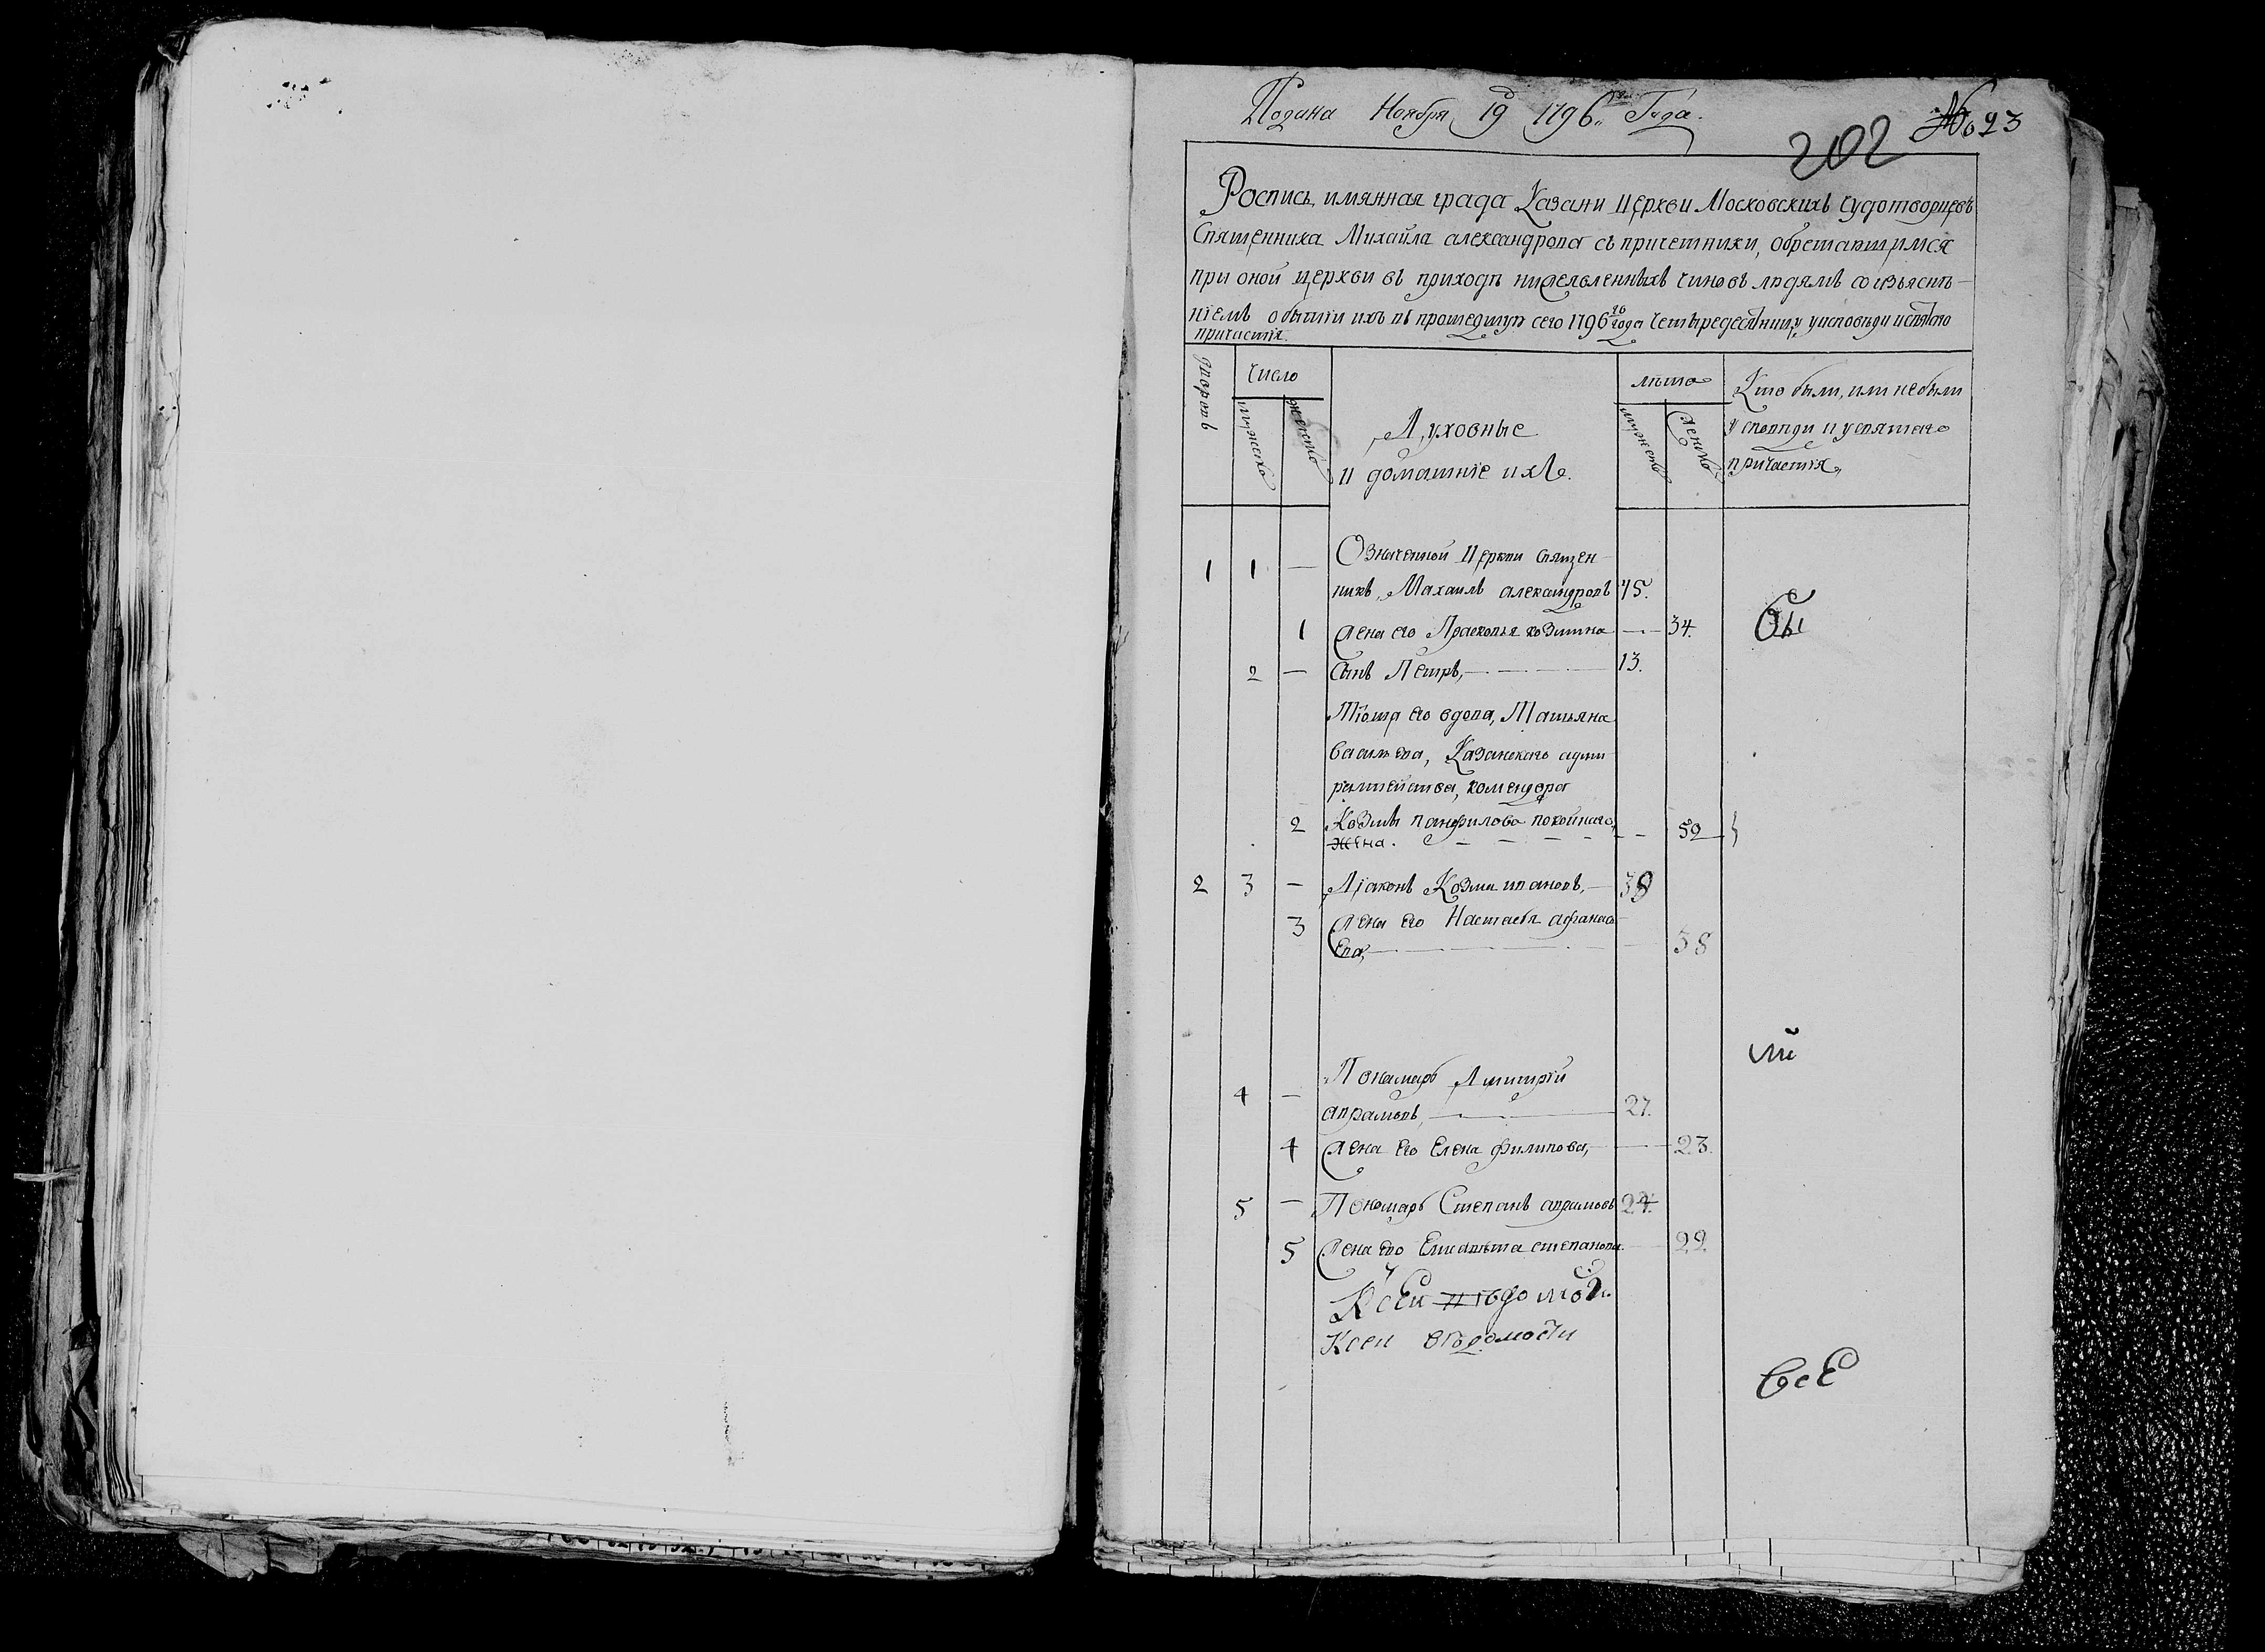 Подана Ноября 19 1796„ го Года.
№ 23
202
Роспись имянная града Казани церкви Московскихъ чудотворцевъ
Священника Михайла александрова съ причетники, обретающимся
при оной церкви въ приходѣ нижеявленныхъ чиновъ людямъ со изъясне-
нїемъ о бытїи ихъ въ прошедшую сего 1796 го года четыредесятницу у исповѣди и святаго
причастїя.
дворовъ
Число
мужеска
женска
Духовные
и домашнїе ихъ.
лѣта
мужеска
женска
Кто были, или не были
у исповѣди и у святаго
причастїя,
1 1 — Означенной Церкви Священ-
никъ, Михаилъ александровъ 45.
1 Жена его Прасковья козмина — 34.
Бы
2 — Сынъ Петръ, — 13.
Тїоща его вдова, Татьяна
Васильева, Казанскаго адми
ралтейства, командора
2 Козмы панфилова покойнаго, 52
жена.
2 3 — Дїаконъ Козма ивановъ, — 38
3 Жена его Настасья афанась
ева, — 38
ли
Пономарь Димитрїй
4 — аврамовъ, — 27.
4 Жена его Елена филипова, — 23.
5 — Пономарь Степанъ аврамовъ 24.
5 Жена его Елисавета степанова 22.
К сей
К сей вѣдомости
Все